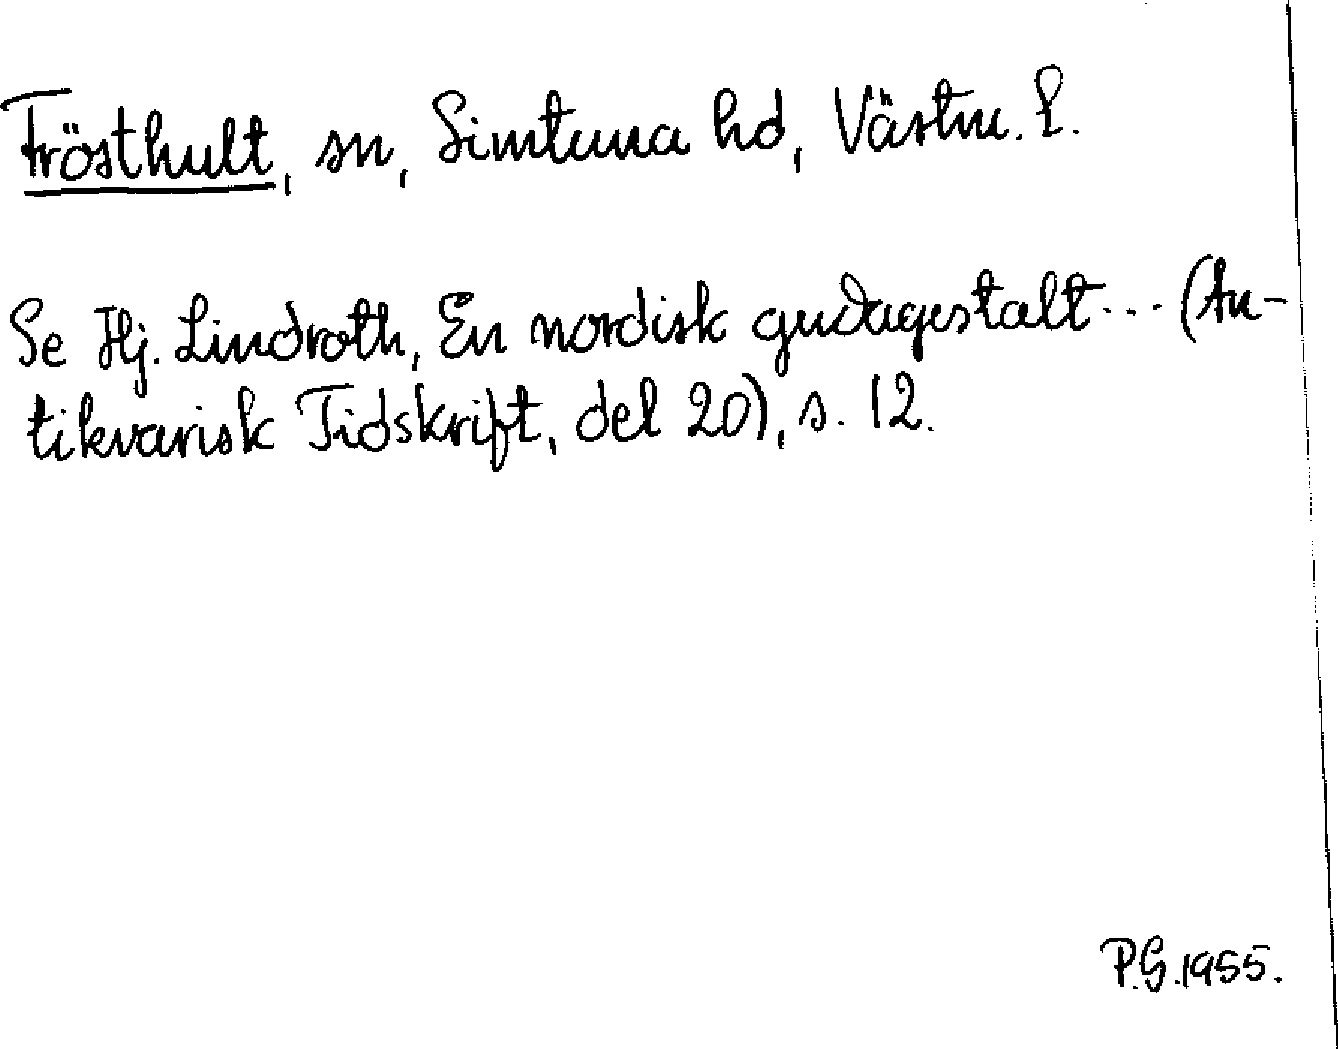 Frösthult, sn, Simtuna hd, Västm. l.
Se Hj. Lindroth, En nordisk gudagestalt... (An-
tikvarisk Tidskrift, del 20), s. 12.
P.G.1955.